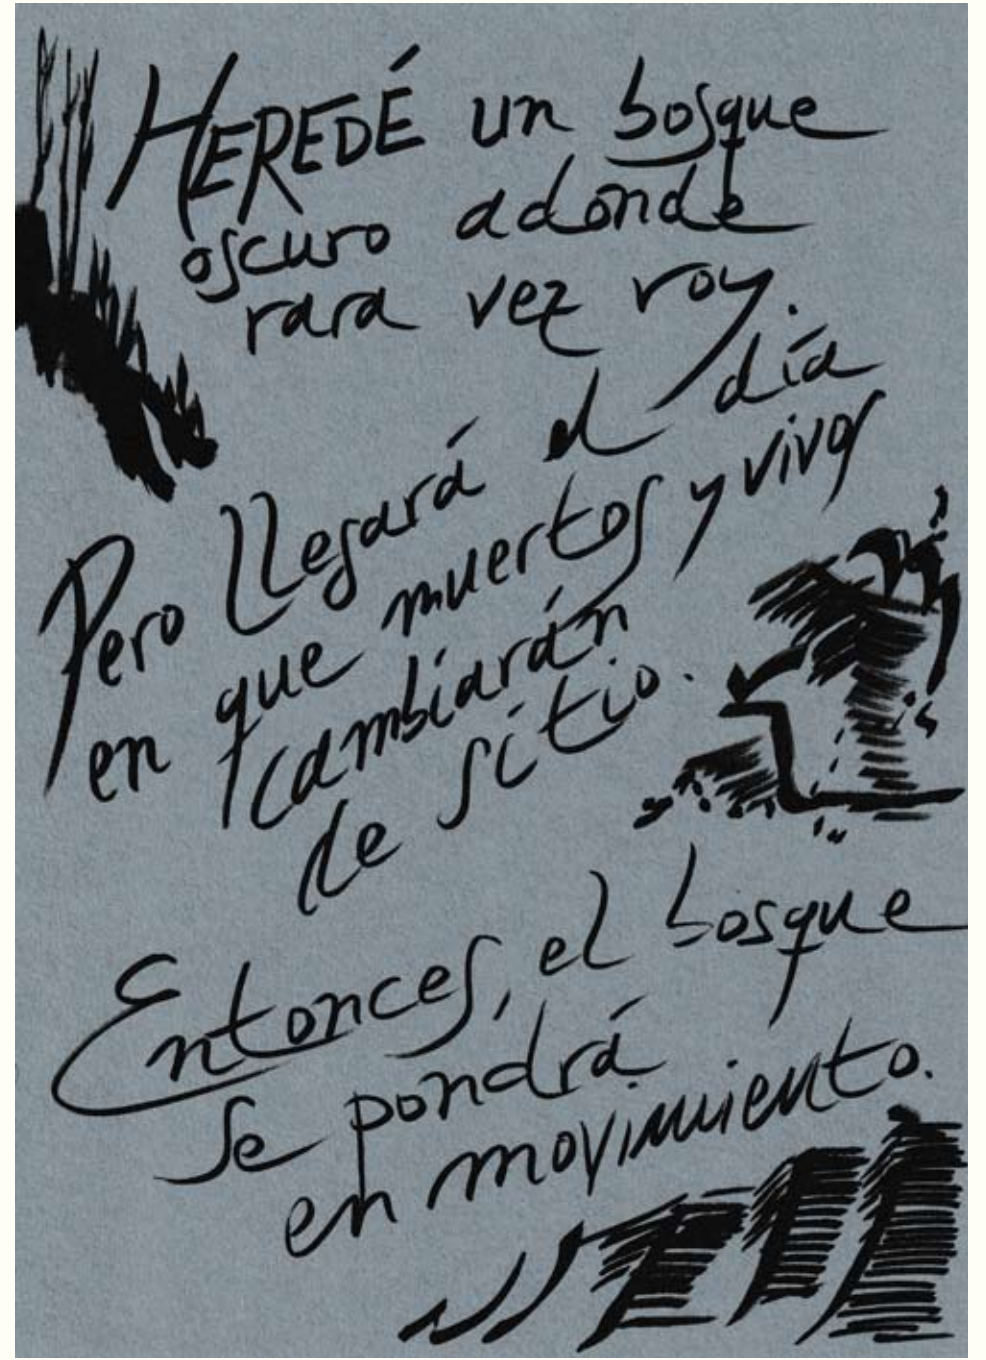 HEREDÉ un bosque
oscuro adonde
rara vez voy.
Pero llegará el día
en que muertos y vivos
cambiarán
de sitio.
Entonces, el bosque
se pondrá
en movimiento.